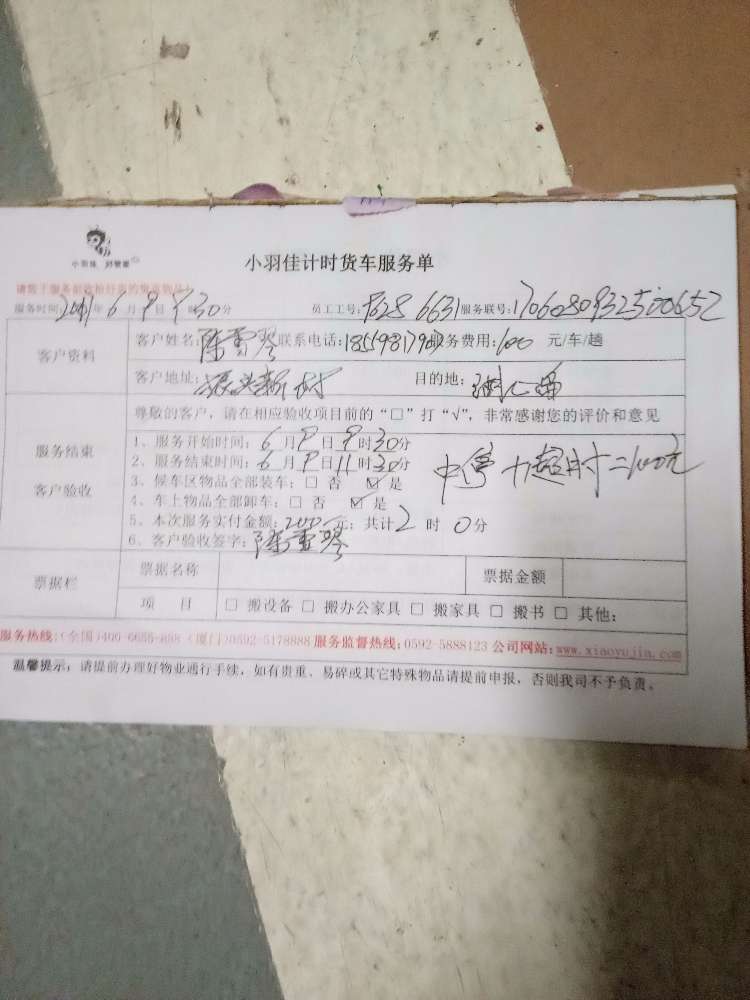 小羽佳 好管家
小羽佳计时货车服务单
服务时间:2017年6月9日9时30分 员工工号: 6631 服务联号:1706080932500652
客户资料
客户姓名:陈雪琴 联系电话: 服务费用:100 元/车/趟
客户地址: 新村 目的地:
尊敬的客户，请在相应验收项目前的“□”打“√”，非常感谢您的评价和意见
服务结束
客户验收
1、服务开始时间:6月9日9时30分
2、服务结束时间:6月9日11时30分
3、候车区物品全部装车:□ 否 ☑ 是
4、车上物品全部卸车:□ 否 ☑ 是
中停+超时=100元
5、本次服务实付金额:200元; 共计2时0分
6、客户验收签字:陈雪琴
票据栏
票据名称 票据金额
项 目 □ 搬设备 □ 搬办公家具 □ 搬家具 □ 搬书 □ 其他:
服务热线:(全国)400-6655-888 (厦门)0592-5178888 服务监督热线:0592-5888123 公司网站:www.xiaoyujia.com
温馨提示:请提前办理好物业通行手续，如有贵重、易碎或其它特殊物品请提前申报，否则我司不予负责。